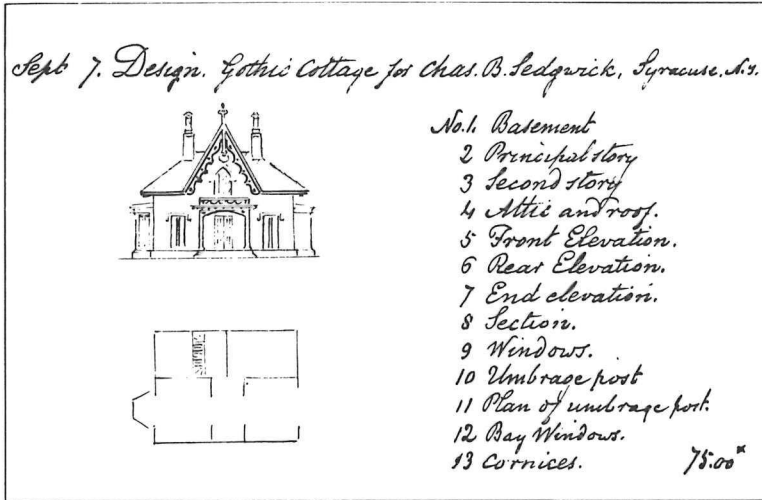 Sept 7. Design. Gothic Cottage for Chas. B. Sedgwick, Syracuse, N.Y.
No.1. Basement
2 Principal story
3 Second story
4 Attic and roof.
5 Front Elevation.
6 Rear Elevation.
7 End elevation.
8 Section.
9 Windows.
10 Umbrage post
11 Plan of umbrage post.
12 Bay Windows.
13 Cornices. 75.00